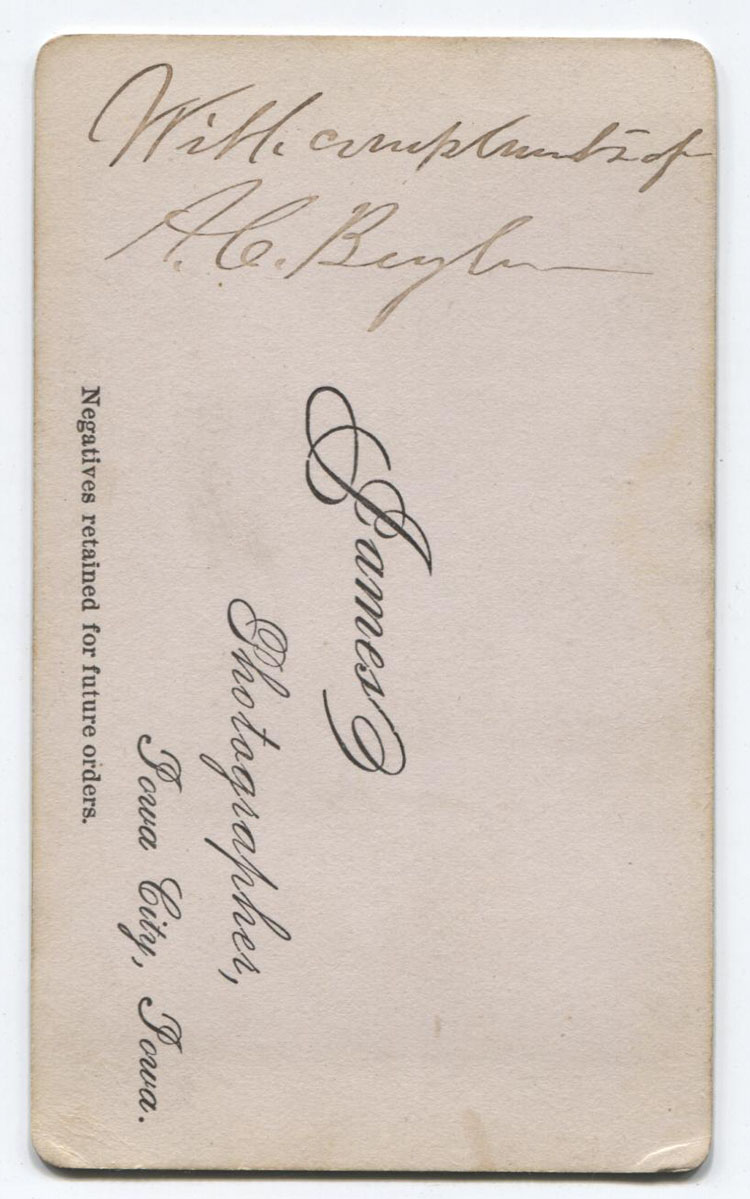 With compliments of
A. C.
James
Photographer,
Iowa City, Iowa.
Negatives retained for future orders.